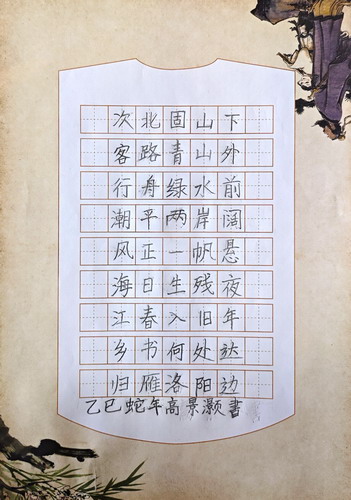 次北固山下
客路青山外
行舟绿水前
潮平两岸阔
风正一帆悬
海日生残夜
江春入旧年
乡书何处达
归雁洛阳边
乙巳蛇年高景灏书